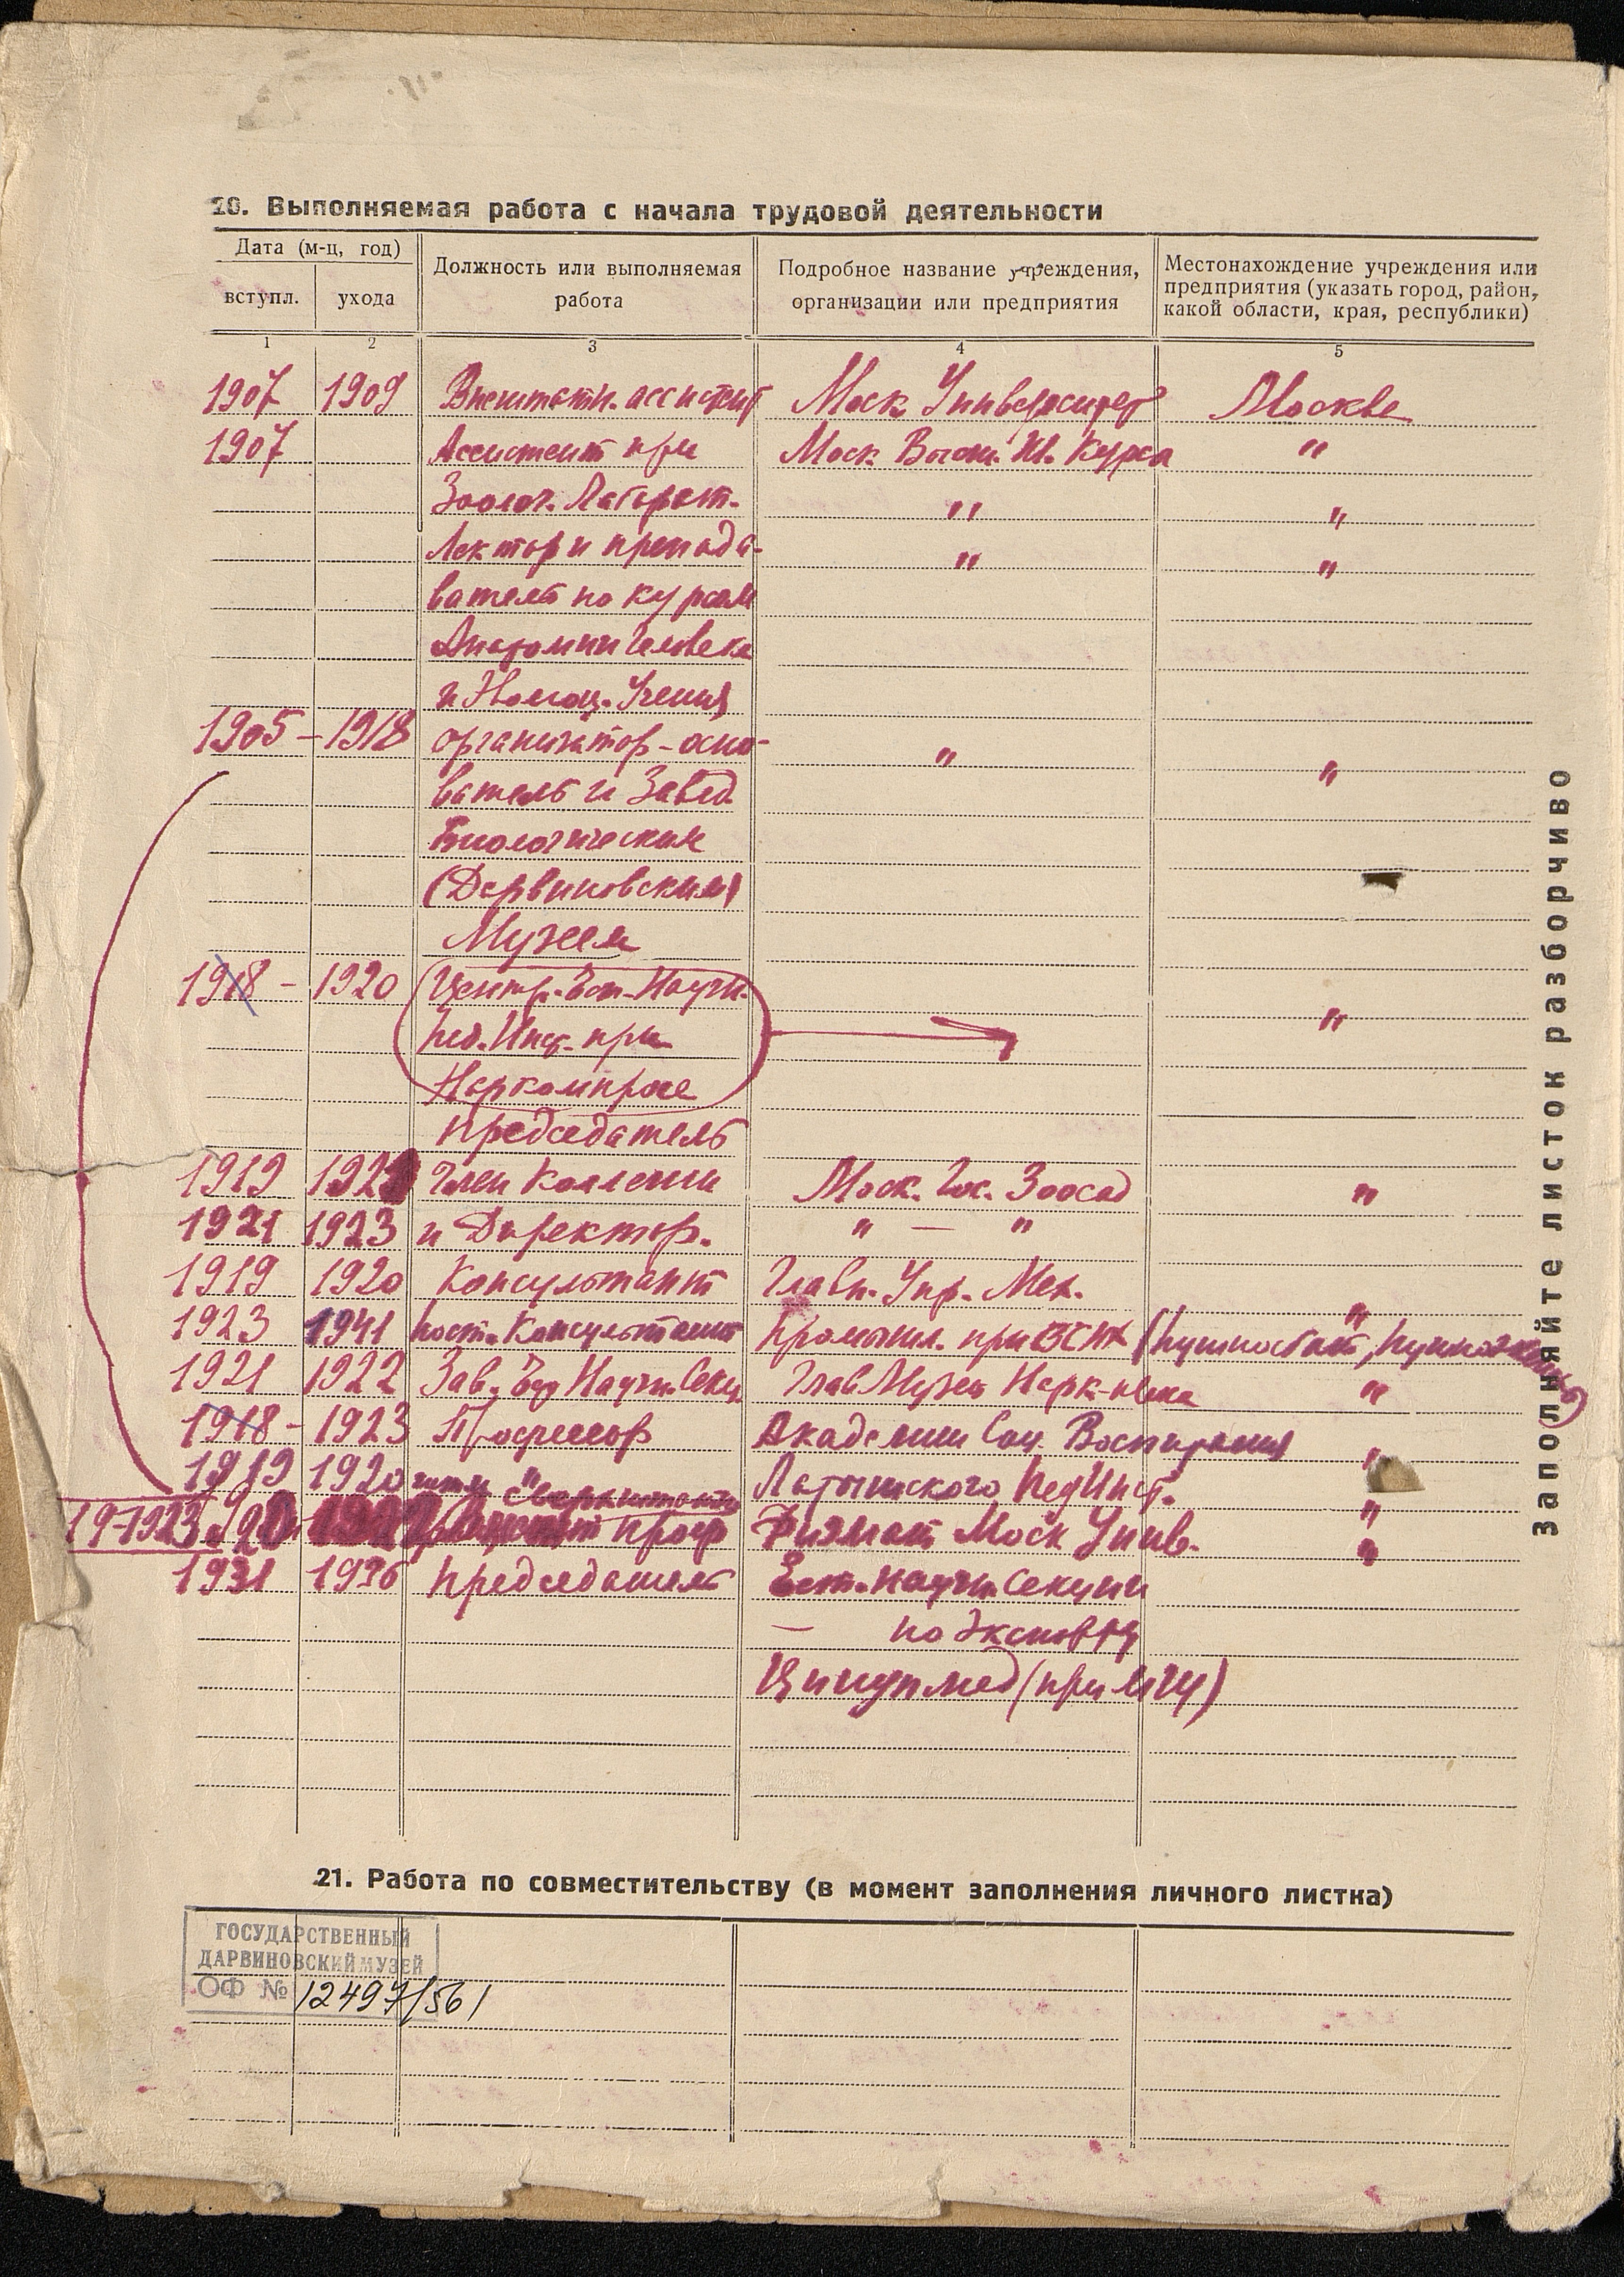 20. Выполняемая работа с начала трудовой деятельности
Дата (м-ц, год)
вступл. ухода
Должность или выполняемая
работа
Подробное название учреждения,
организации или предприятия
Местонахождение учреждения или
предприятия (указать город, район,
какой области, края, республики)
1 2 3 4 5
1907 1909 Внештатн. ассистент Моск Университет Москве
1907 Ассистент при Моск. Высш. Ж. Курса "
Зоолог. Лаборат. " "
Лектор и препода- " "
ватель по курсам
Анатомии Человека
и Эволюц. Учения
1905 – 1918 организатор-осно- " "
ватель и Завед.
Биологическим
(Дарвиновским)
Музеем
1918 – 1920 Центр. Ест.-Научн. "
Пед. Инст. при
Наркомпросе
председатель
1919 1921 Член Коллегии Моск. Гос. Зоосад "
1921 1923 и Директор. " — "
1919 1920 Консультант Главн. Упр. Мех.
1923 1941 пост. Консультант Промышл. при ВСНХ "
1921 1922 Зав. Ест Научн. Секц. Глав Музея Нарк-проса "
1918 – 1923 Профессор Академии Соц. Воспитания "
1919 1920 " Латышского Пед Инст. "
проф Физмат Моск Унив. "
1931 1936 председатель Ест. научн. Секции
— по Экспорту
(при
21. Работа по совместительству (в момент заполнения личного листка)
ГОСУДАРСТВЕННЫЙ
ДАРВИНОВСКИЙ МУЗЕЙ
ОФ № 12497/561
Заполняйте листок разборчиво